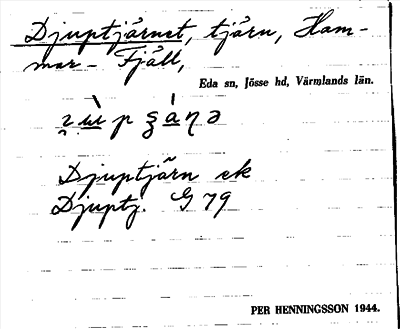 Djuptjärnet, tjärn, Ham-
mar- Fjäll,
Eda sn, Jösse hd, Värmlands län.
Djuptjärn ek
Djuptj. G 79
PER HENNINGSSON 1944.